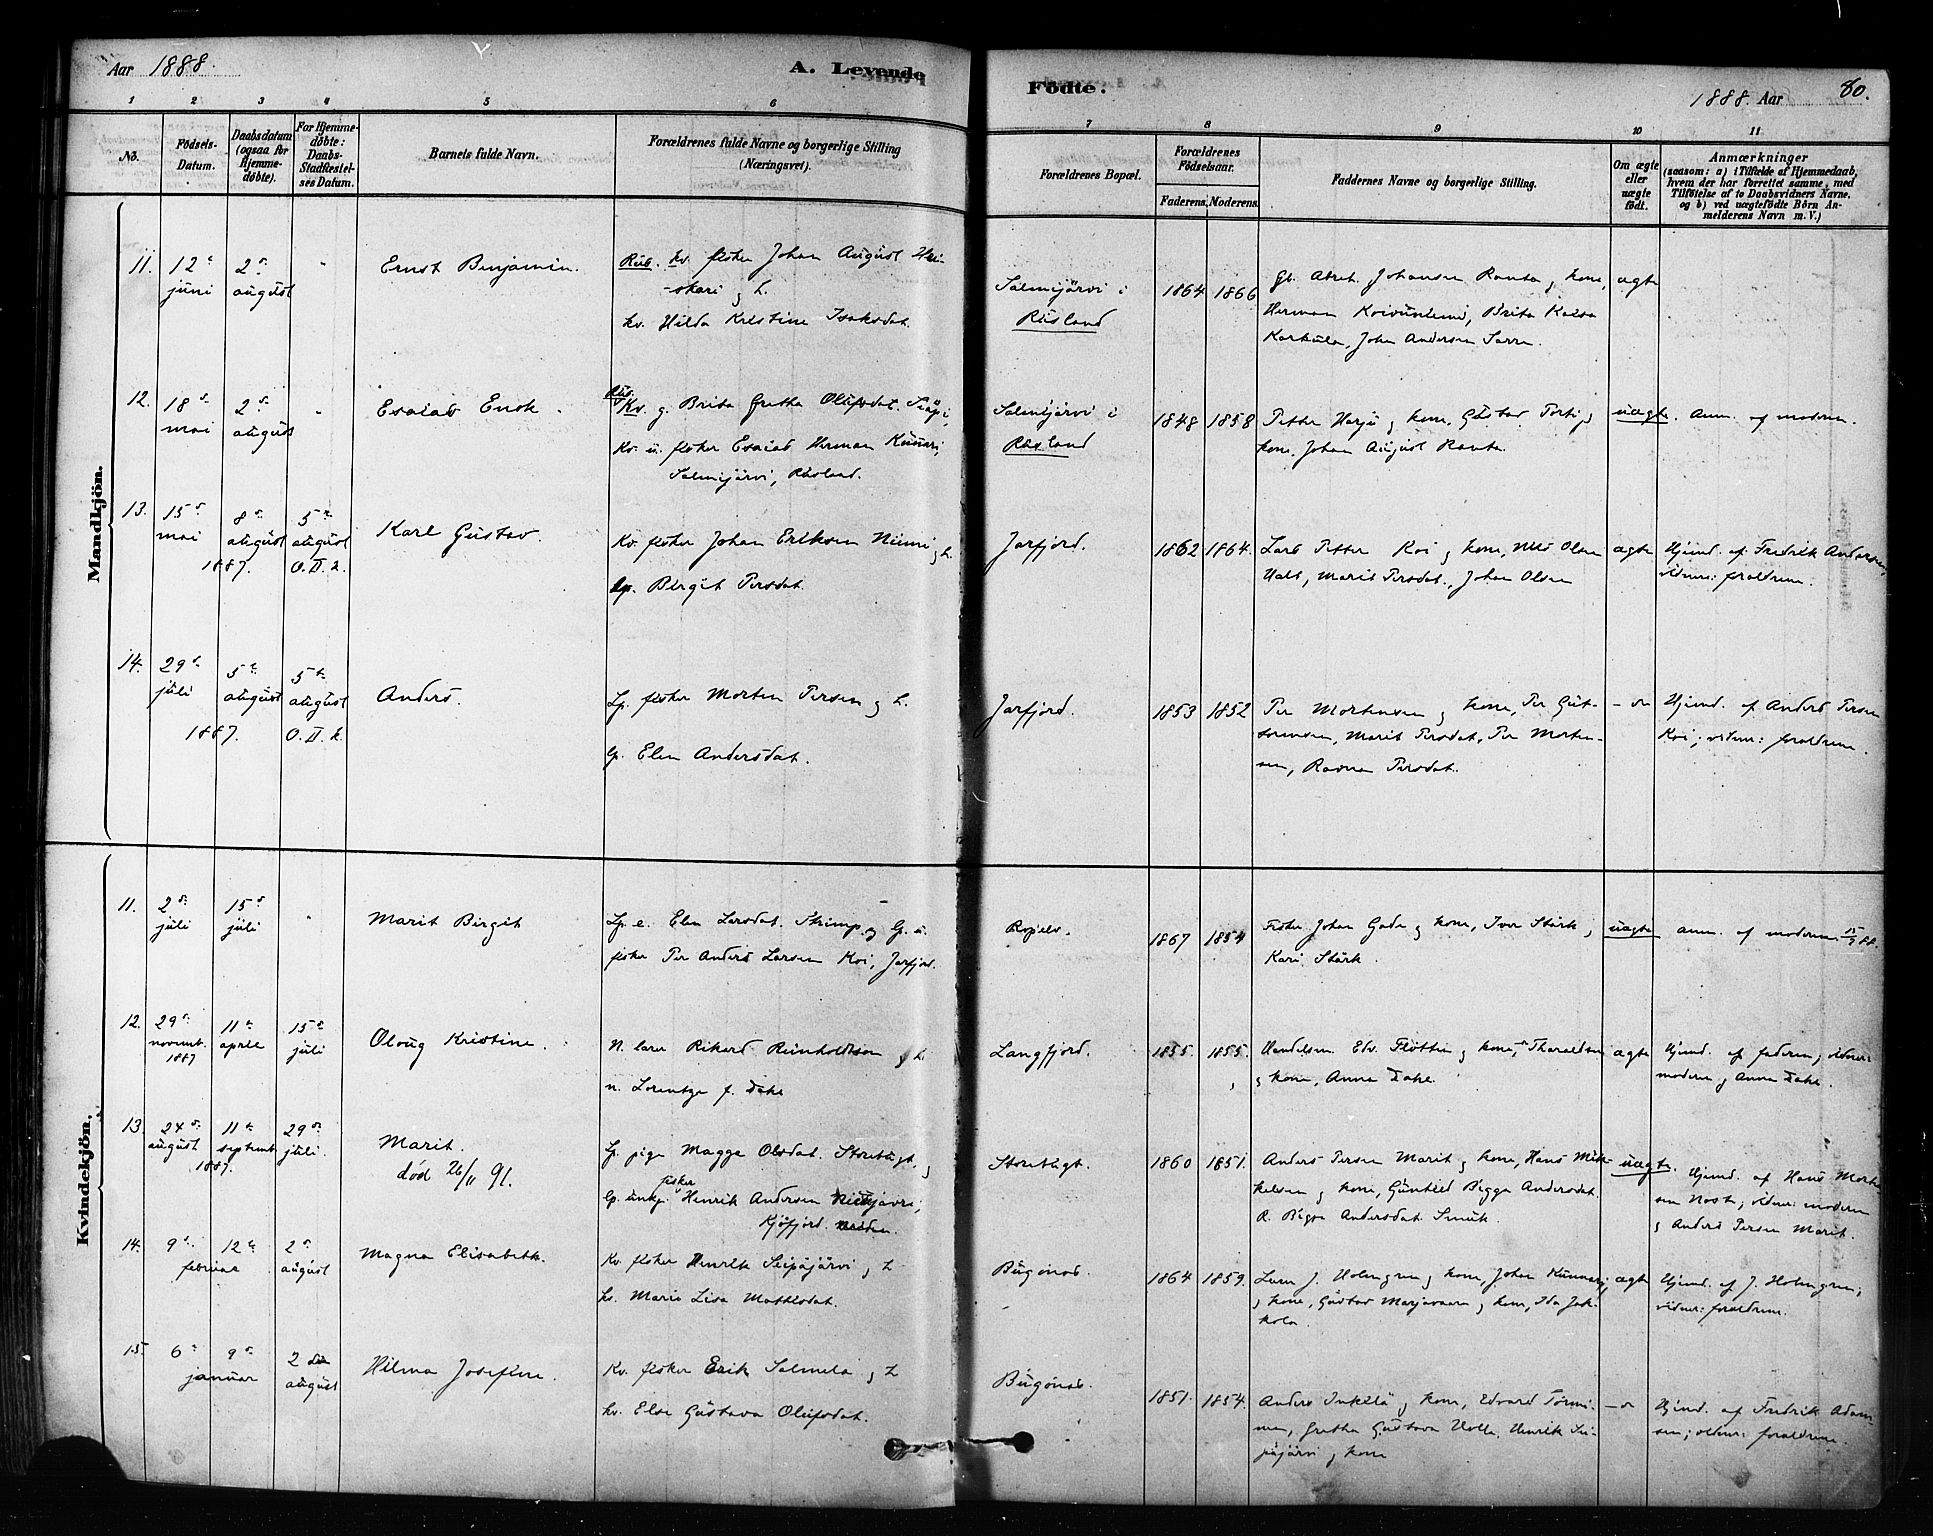 Aar 1888.
A. Levende
Födte.
1888. Aar
80.
1 2 3 4 5 6 7 8 9 10 11
No.
Födsels-
Datum.
Daabsdatum
(ogsaa for
Hjemme-
döbte).
For Hjemme-
döbte:
Daabs-
Stadfæstel-
ses Datum.
Barnets fulde Navn.
Forældrenes fulde Navne og borgerlige Stilling
(Næringsvei).
Forældrenes Bopæl.
Forældrenes
Födselsaar.
Faderens. Moderens.
Faddernes Navne og borgerlige Stilling.
Om ægte
eller
uægte
födt.
Anmærkninger
(saasom: a) i Tilfælde af Hjemmedaab,
hvem der har forrettet samme, med
Tilföielse af to Daabsvidners Navne,
og b) ved uægtefödte Börn An-
melderens Navn m. V.)
Mandkjön.
11. 12 juni
2 august
Ernst Benjamin.
Rus. kv. fisker Johan August
-skari og h.
kv. Hilda Kristine Isaksdat.
Salmijärvi i
Rusland
1864 1866
Johansen Ranta og kone,
Herman Koivuniemi, Brita Kaisa
Karkula, Johan Andersen Sarre.
ægte
12. 18 mai
2 august
Esaias Enok.
Rus.
Kv. g. Brita Gretha Olufsdat.
Kv. u. fisker Esaias Herman Kunnari,
Salmijärvi, Rusland.
Salmijärvi i
Rusland
1848 1858
Petter Harju og kone, Gustav Porti og
kone, Johan August Ranta.
uægte.
Anm. af moderen.
13. 15 mai
8 august
1887.
5 august
O. II. k.
Karl Gustav.
Kv. fisker Johan Eriksen Niemi og h.
lp. Birgit Persdat.
Jarfjord.
1862 1864.
Lars Petter Koi og kone, Nils Olsen
Halt, Marit Persdat., Johan Olsen
ægte
Hjemd. af Fredrik Andersen,
vidner: forældrene.
14. 29 juli
5 august
1887.
5 august
O. II. k.
Anders.
Lp. fisker Morten Persen og h.
lp. Elen Andersdat.
Jarfjord.
1853 1852
Per Mortensen og kone, Per Gut-
tormsen, Marit Persdat, Per Morten-
sen, Ravna Persdat.
Hjemd. af Anders Persen
Koi; vidner: forældrene.
Kvindekjön.
11. 2 juli
15 juli
Marit Birgit
Lp. e. Elen Larsdat. Skrimp og lp. u.
fisker Per Anders Larsen Koi, Jarfjord.
1867 1854
Fisker Johan Gade og kone, Iver Stärk,
Kari Stärk.
uægte
anm. af moderen 15/7 88.
12. 29
novemb.
1887
11 april
15 juli
Oloug Kristine.
N. lærer Rikard Reinholdtsen og h.
n. Lorentze f. Falke
Langfjord.
1855. 1855.
Handelsm. Edv. Fløtten og kone, Tharaldsen
og kone, Anna Falke.
ægte
Hjemd. af faderen; vidner:
moderen og Anna Falke.
13. 24
august
11
septemb.
1887.
29
juli.
Marit.
död 26/11 91.
Lp. pige Magga Olsdat. Storbugt, og
fisker
lp. ungk. Henrik Andersen
Kjöfjord.
Storbugt.
1860 1851.
Anders Persen Marit og kone, Hans Mik-
kelsen og kone, Gunhild Bigga Andersdat.
R. Bigga Andersdat Smuk.
uægte.
Hjemd. af Hans Morten-
sen Nost; vidner: moderen
og Anders Persen Marit.
14. 9 12
februar
2
august
Magna Elisabeth.
Kv. fisker Henrik Seipäjärvi og h.
kv. Maria Lisa Mathisdat.
Bugönæs.
1864 1859.
J. Holmgren og kone, Johan Kunnari
og kone, Gustav Marjavaara og kone, Ida Jak-
kola.
ægte
Hjemd. af J. Holmgren;
vidner: forældrene.
15. 6 9
januar
2
august
Hilma Josefine.
Kv. fisker Erik Salmela og h.
kv. Else Gustava Olufsdat.
Bugönæs.
1851. 1854.
Anders Inkelä og kone, Edvard Törmi-
nen, Gretha Gustava Holle, Henrik Sei-
päjärvi og kone
Hjemd. af Fredrik Adam-
sen; vidner: forældrene.